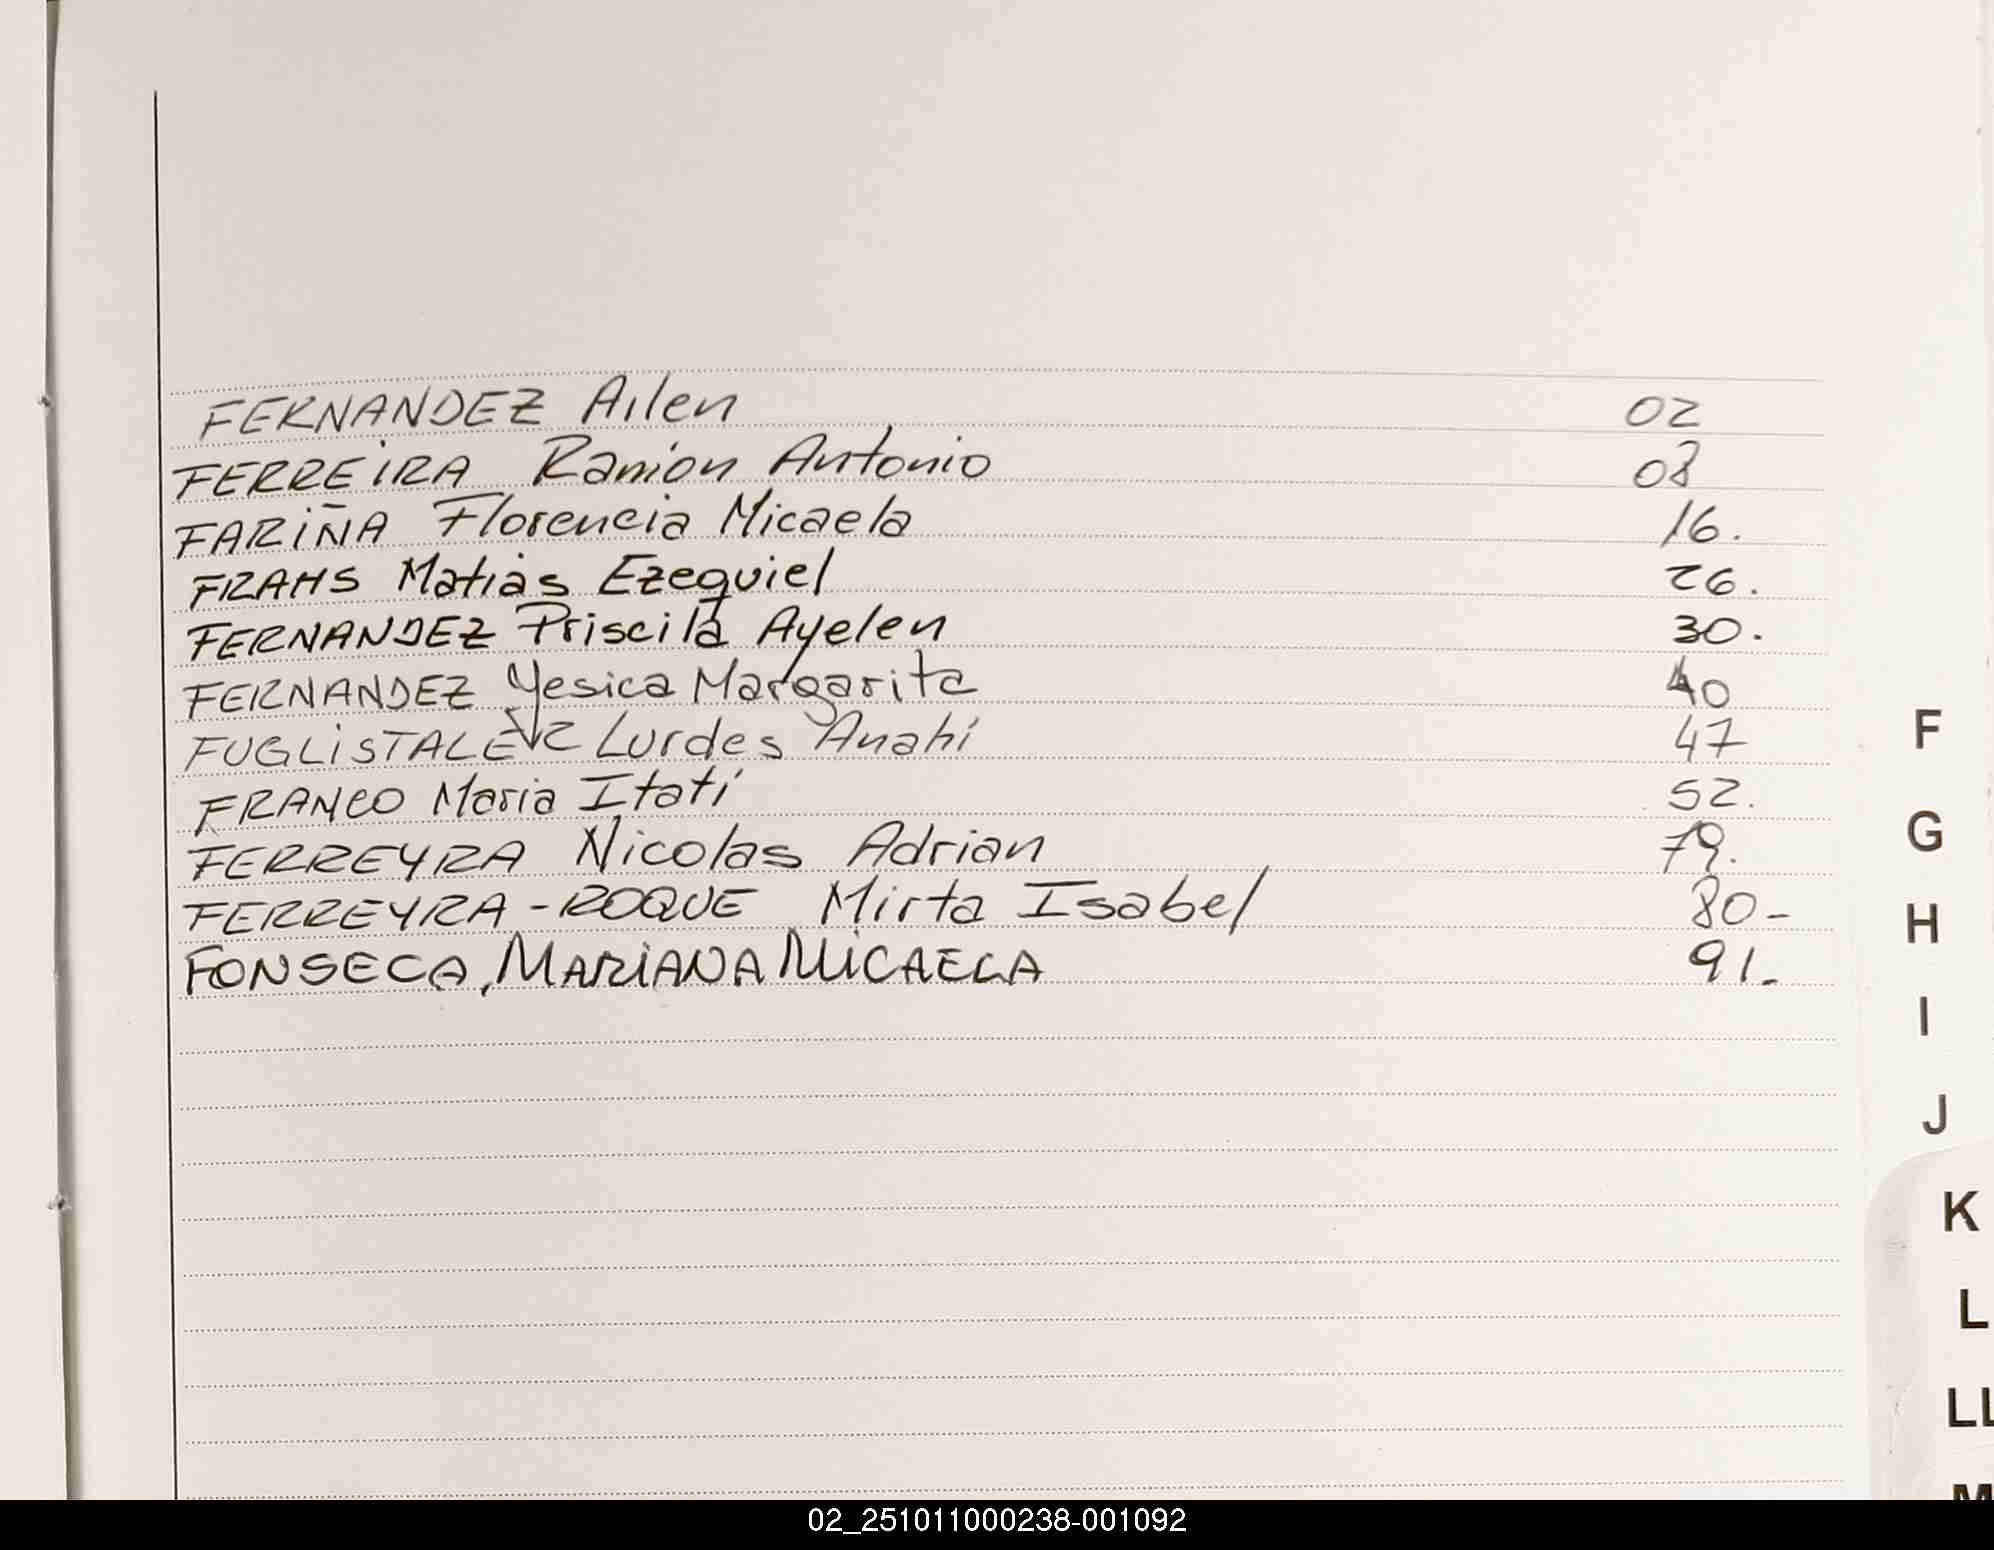 FERNANDEZ Ailen 02
FERREIRA Ramon Antonio 08
FARIÑA Florencia Micaela 16.
FRAHS Matias Ezequiel 26.
FERNANDEZ Priscila Ayelen 30.
FERNANDEZ Yesica Margarita 40
Lurdes Anahi 47
FRANCO Maria Itati 52.
FERREYRA Nicolas Adrian 79.
FERREYRA-ROQUE Mirta Isabel 80-
FONSECA, MARIANA MICAELA 91.-
F
G
H
I
J
K
L
LL
M
02_251011000238-001092